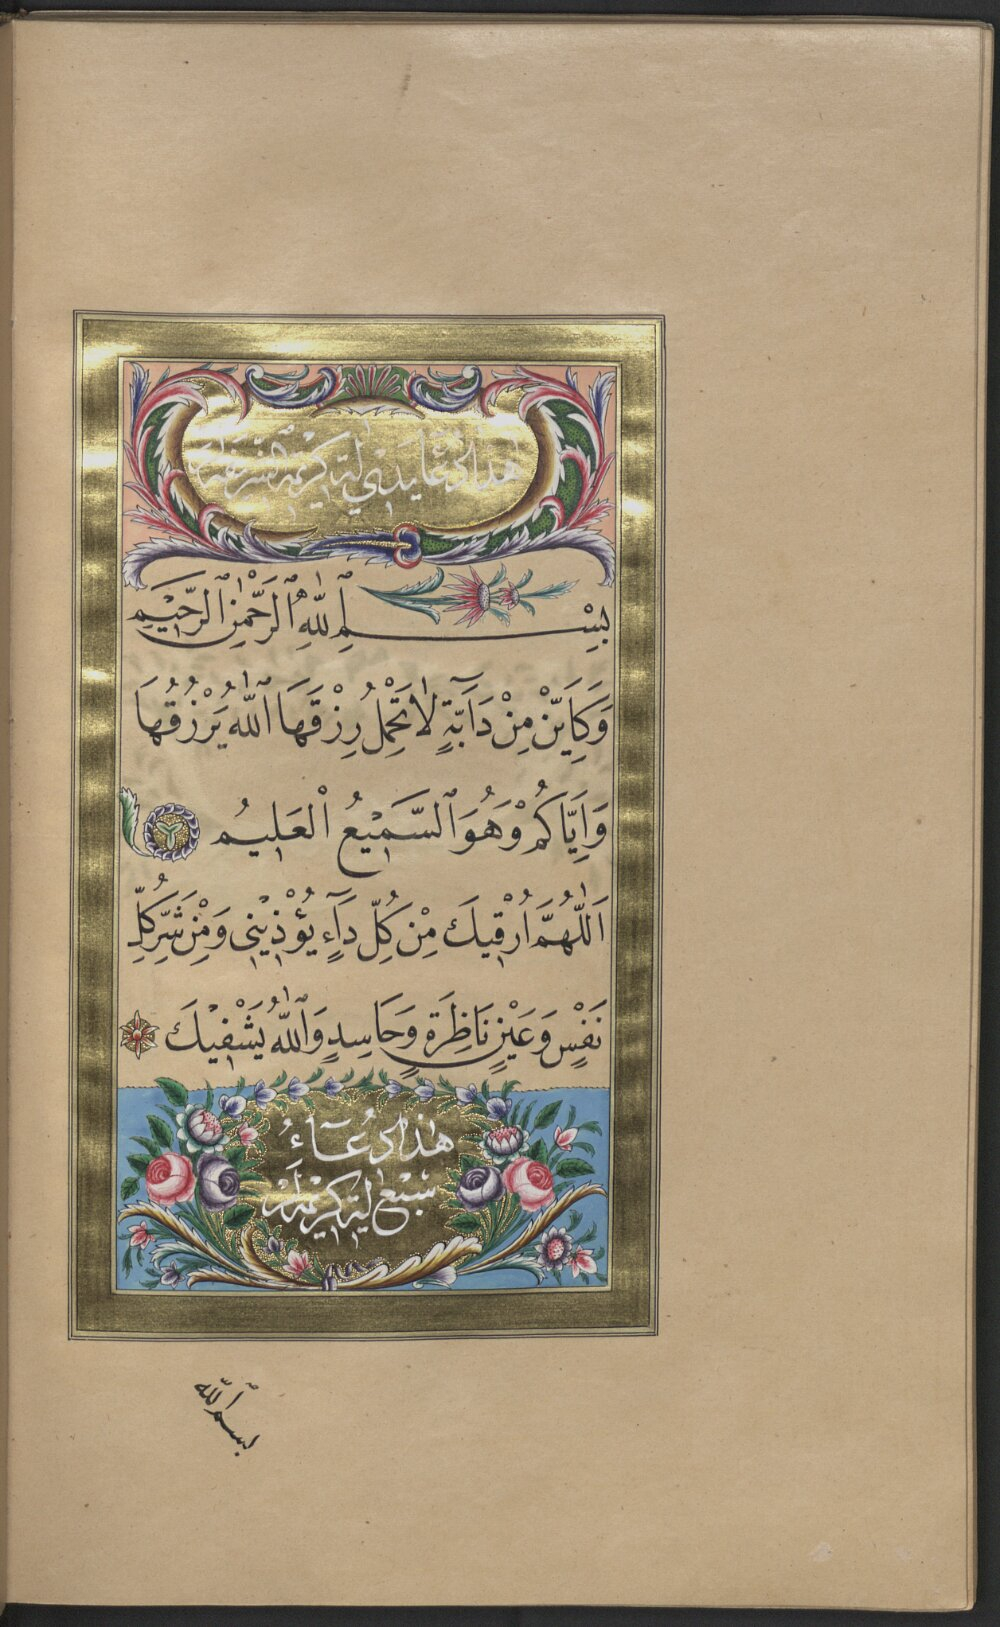 هذا دعاء يدي لية كريمة الشريفة
بِسْمِ ٱللّٰهِ ٱلرَّحْمٰنِ ٱلرَّحِيْمِ
وَكَاَيِّنْ مِنْ دَٓابَّةٍ لَا تَحْمِلُ رِزْقَهَا ٱللّٰهُ يَرْزُقُهَا
وَاِيَّاكُمْ وَهُوَ ٱلسَّمِيْعُ ٱلْعَلِيمُ
اَللّٰهُمَّ اُرْقِيكَ مِنْ كُلِّ دَٓاءٍ يُؤْذِيْنِي وَمِنْ شَرِّ كُلِّ
نَفْسٍ وَعَيْنٍ نَاظِرَةٍ وَحَاسِدٍ وَٱللّٰهُ يَشْفِيْكَ
هٰذَا دُعَٓاءُ
سَبْع لية كَرِيْمَه لَرْ
بسم الله